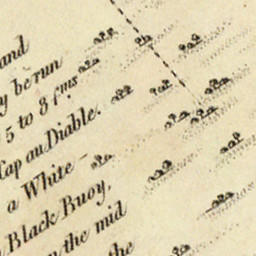 and
y be run
5 to 8 f.ms
Cap au Diable.
a White -
Black Buoy,
the mid
the